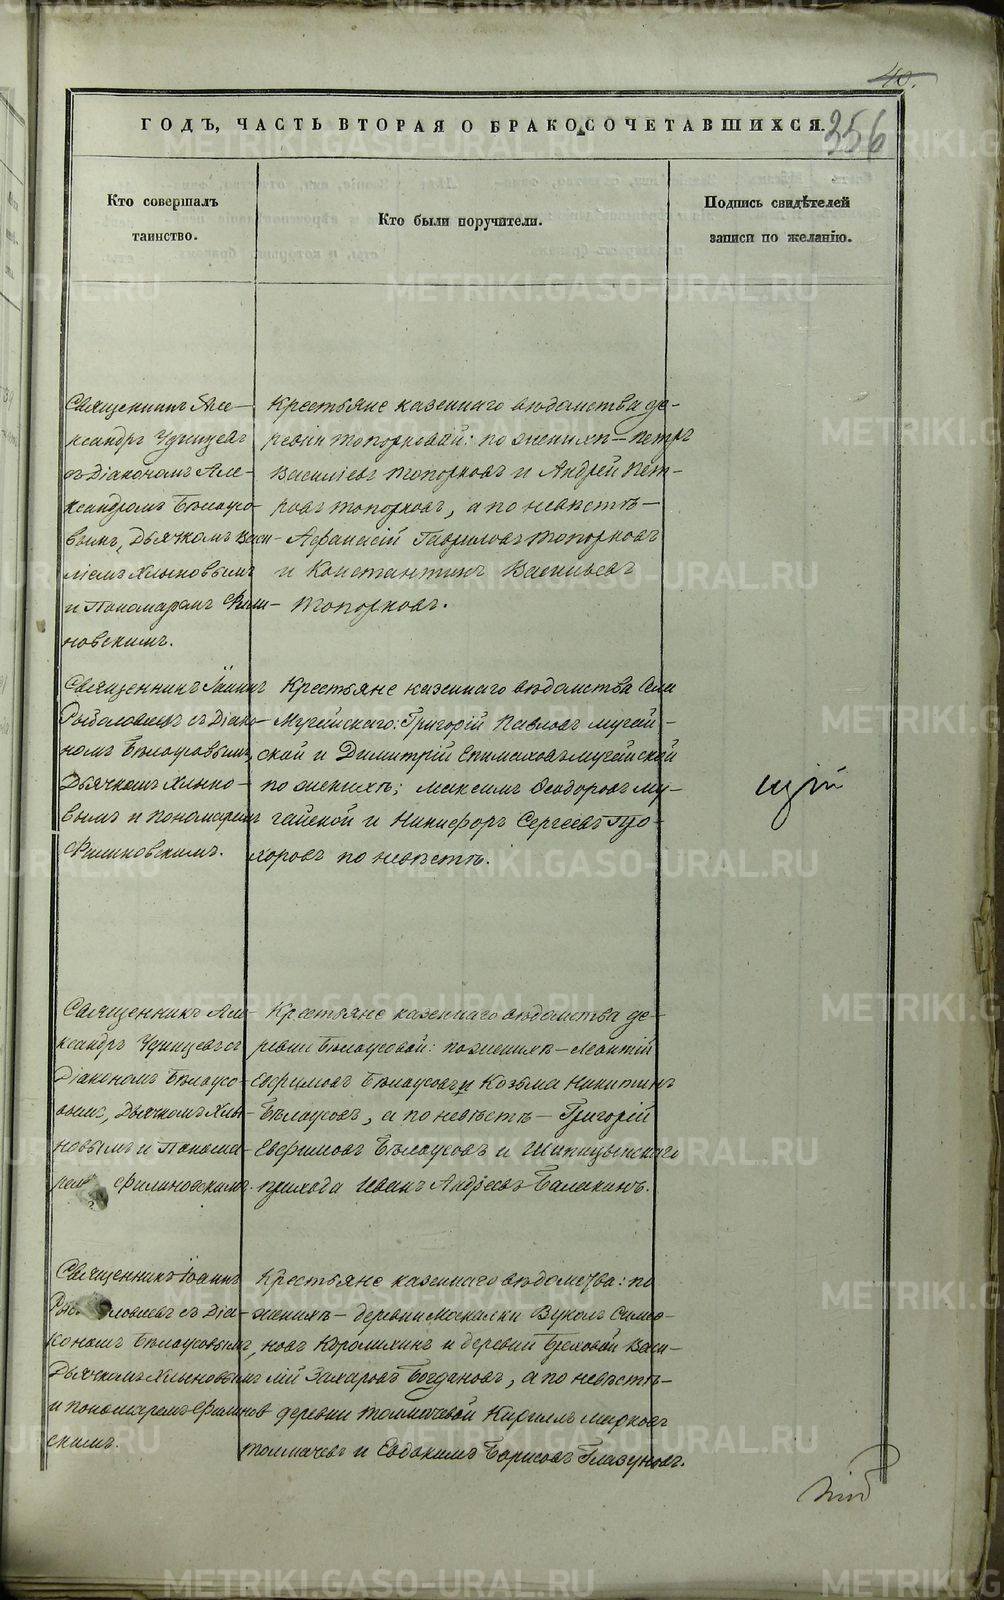 40.
ГОДЪ, ЧАСТЬ ВТОРАЯ О БРАКОСОЧЕТАВШИХСЯ.
356
Кто совершалъ
таинство.
Кто были поручители.
Подпись свидѣтелей
записи по желанію.
Священникъ Але-
ксандръ
съ Діакономъ Але-
ксандромъ Бѣлоусо-
вымъ, Дьячкомъ Васи-
ліемъ Хлыновымъ
и Пономаремъ Фили-
новскимъ.
Крестьяне казеннаго вѣдомства де-
ревни Топорковой: по женихѣ – Петръ
Василіевъ Топорковъ и Андрей Пет-
ровъ Топорковъ, а по невѣстѣ –
Афанасій Гавриловъ Топорковъ
и Константинъ Васильевъ
Топорковъ.
Священникъ Іоаннъ
съ Діако-
номъ Бѣлоусовымъ,
Дьячкомъ Хлыно-
вымъ и Пономаремъ
Филиновскимъ.
Крестьяне казеннаго вѣдомства села
Мугайскаго: Григорій Павловъ Мугай-
ской и Димитрій Епимаховъ Мугайской
по женихѣ; Максимъ Ѳеодоровъ Му-
гайской и Никифоръ Сергеевъ Про-
хоровъ по невѣстѣ.
щій
Священникъ Але-
ксандръ съ
Діакономъ Бѣлоусо-
вымъ, Дьячкомъ Хлы-
новымъ и Понома-
ремъ Филиновскимъ.
Крестьяне казеннаго вѣдомства де-
ревни Бѣлоусовой: по женихѣ – Леонтій
Евфимовъ Бѣлоусовъ и Козьма Никитинъ
Бѣлоусовъ, а по невѣстѣ – Григорій
Евфимовъ Бѣлоусовъ и Шипицынскаго
прихода Иванъ Андреевъ Балакинъ.
Священникъ Іоаннъ
съ Діа-
кономъ Бѣлоусовымъ,
Дьячкомъ Хлыновымъ
и Пономаремъ Филинов
скимъ.
Крестьяне казеннаго вѣдомства: по
женихѣ – деревни Москалки Вуколъ Симо-
новъ Королихинъ и деревни Васи-
лій Захаровъ Богдановъ, а по невѣстѣ –
деревни Толмачевой Кириллъ Марковъ
Толмачевъ и Евдокимъ Борисовъ Глазуновъ.
METRIKI.GASO-URAL.RU